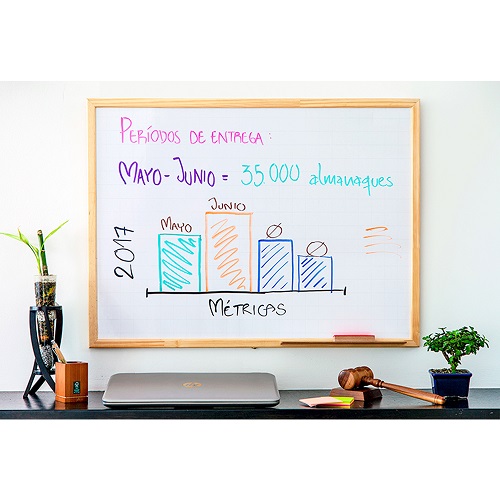 PERÍODOS DE ENTREGA:
MAYO - JUNIO = 35.000 almanaques
2017
MAYO
JUNIO
Ø
Ø
MÉTRICAS